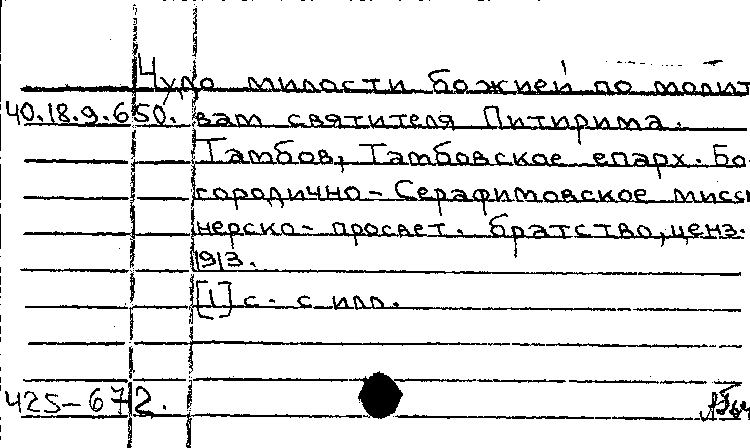 Чудо милости божией по молит
40.18.9.650. вам святителя Питирима.
Тамбов, Тамбовское епарх. Бо-
городично-Серафимовское мисси
нерско-просвет. братство, ценз.
1913.
[1] с. с илл.
425-672.